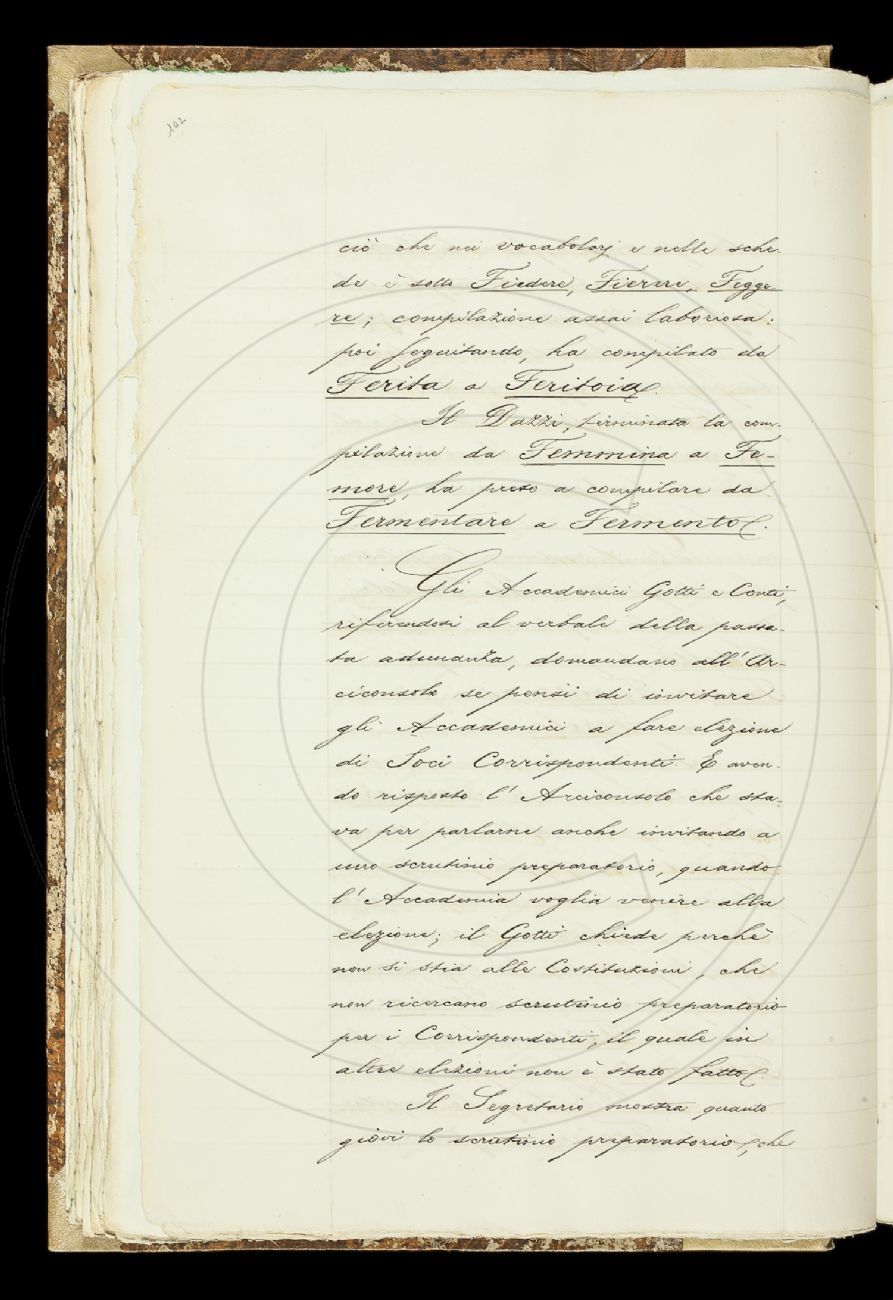 202
ciò che nei vocabolarj e nelle sche-
de è sotto Fiedere, Fierere, Fegge-
re; compilazione assai laboriosa:
poi seguitando, ha compilato da
Ferita a Feritoia.
Il Dazzi, terminata la com-
pilazione da Femmina a Fe-
more, ha preso a compilare da
Fermentare a Fermento.
Gli Accademici Gotti e Conti,
riferendosi al verbale della passa-
ta adunanza, domandano all'Ar-
ciconsolo se pensi di invitare
gli Accademici a fare elezione
di Soci Corrispondenti. E aven-
do risposto l'Arciconsolo che sta-
va per parlarne anche invitando a
uno scrutinio preparatorio, quando
l'Accademia voglia venire alla
elezione; il Gotti chiede perchè
non si stia alle Costituzioni, che
non ricercano scrutinio preparatorio
per i Corrispondenti, il quale in
altre elezioni non è stato fatto.
Il Segretario mostra quanto
giovi lo scrutinio preparatorio, che